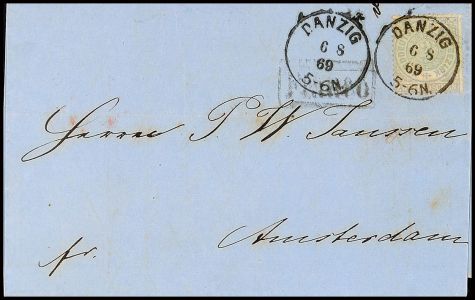 DANZIG
6 8
69
5-6N.
DANZIG
6 8
69
5-6N.
FRANCO
Herren P. W. Janssen
fr. Amsterdam